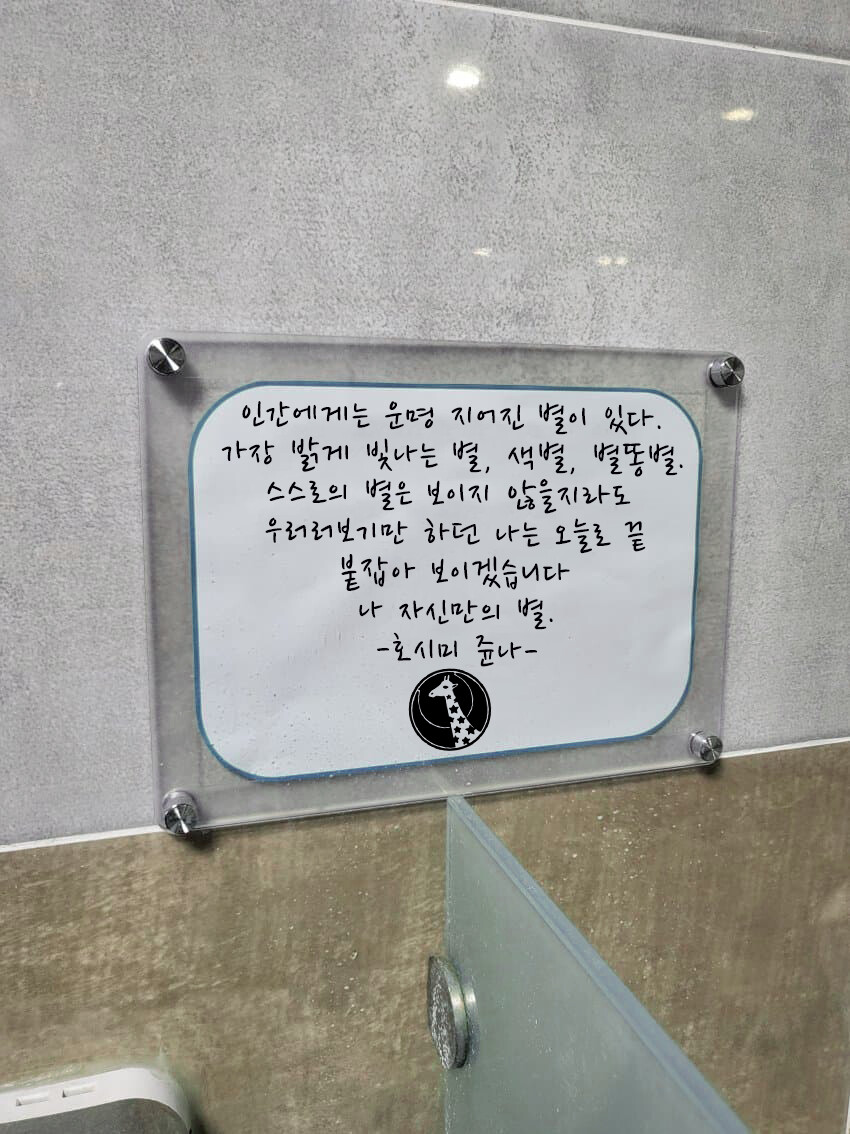 인간에게는 운명 지어진 별이 있다.
가장 밝게 빛나는 별, 색별, 별똥별.
스스로의 별은 보이지 않을지라도
우러러보기만 하던 나는 오늘로 끝
붙잡아 보이겠습니다
나 자신만의 별.
-호시미 쥰나-